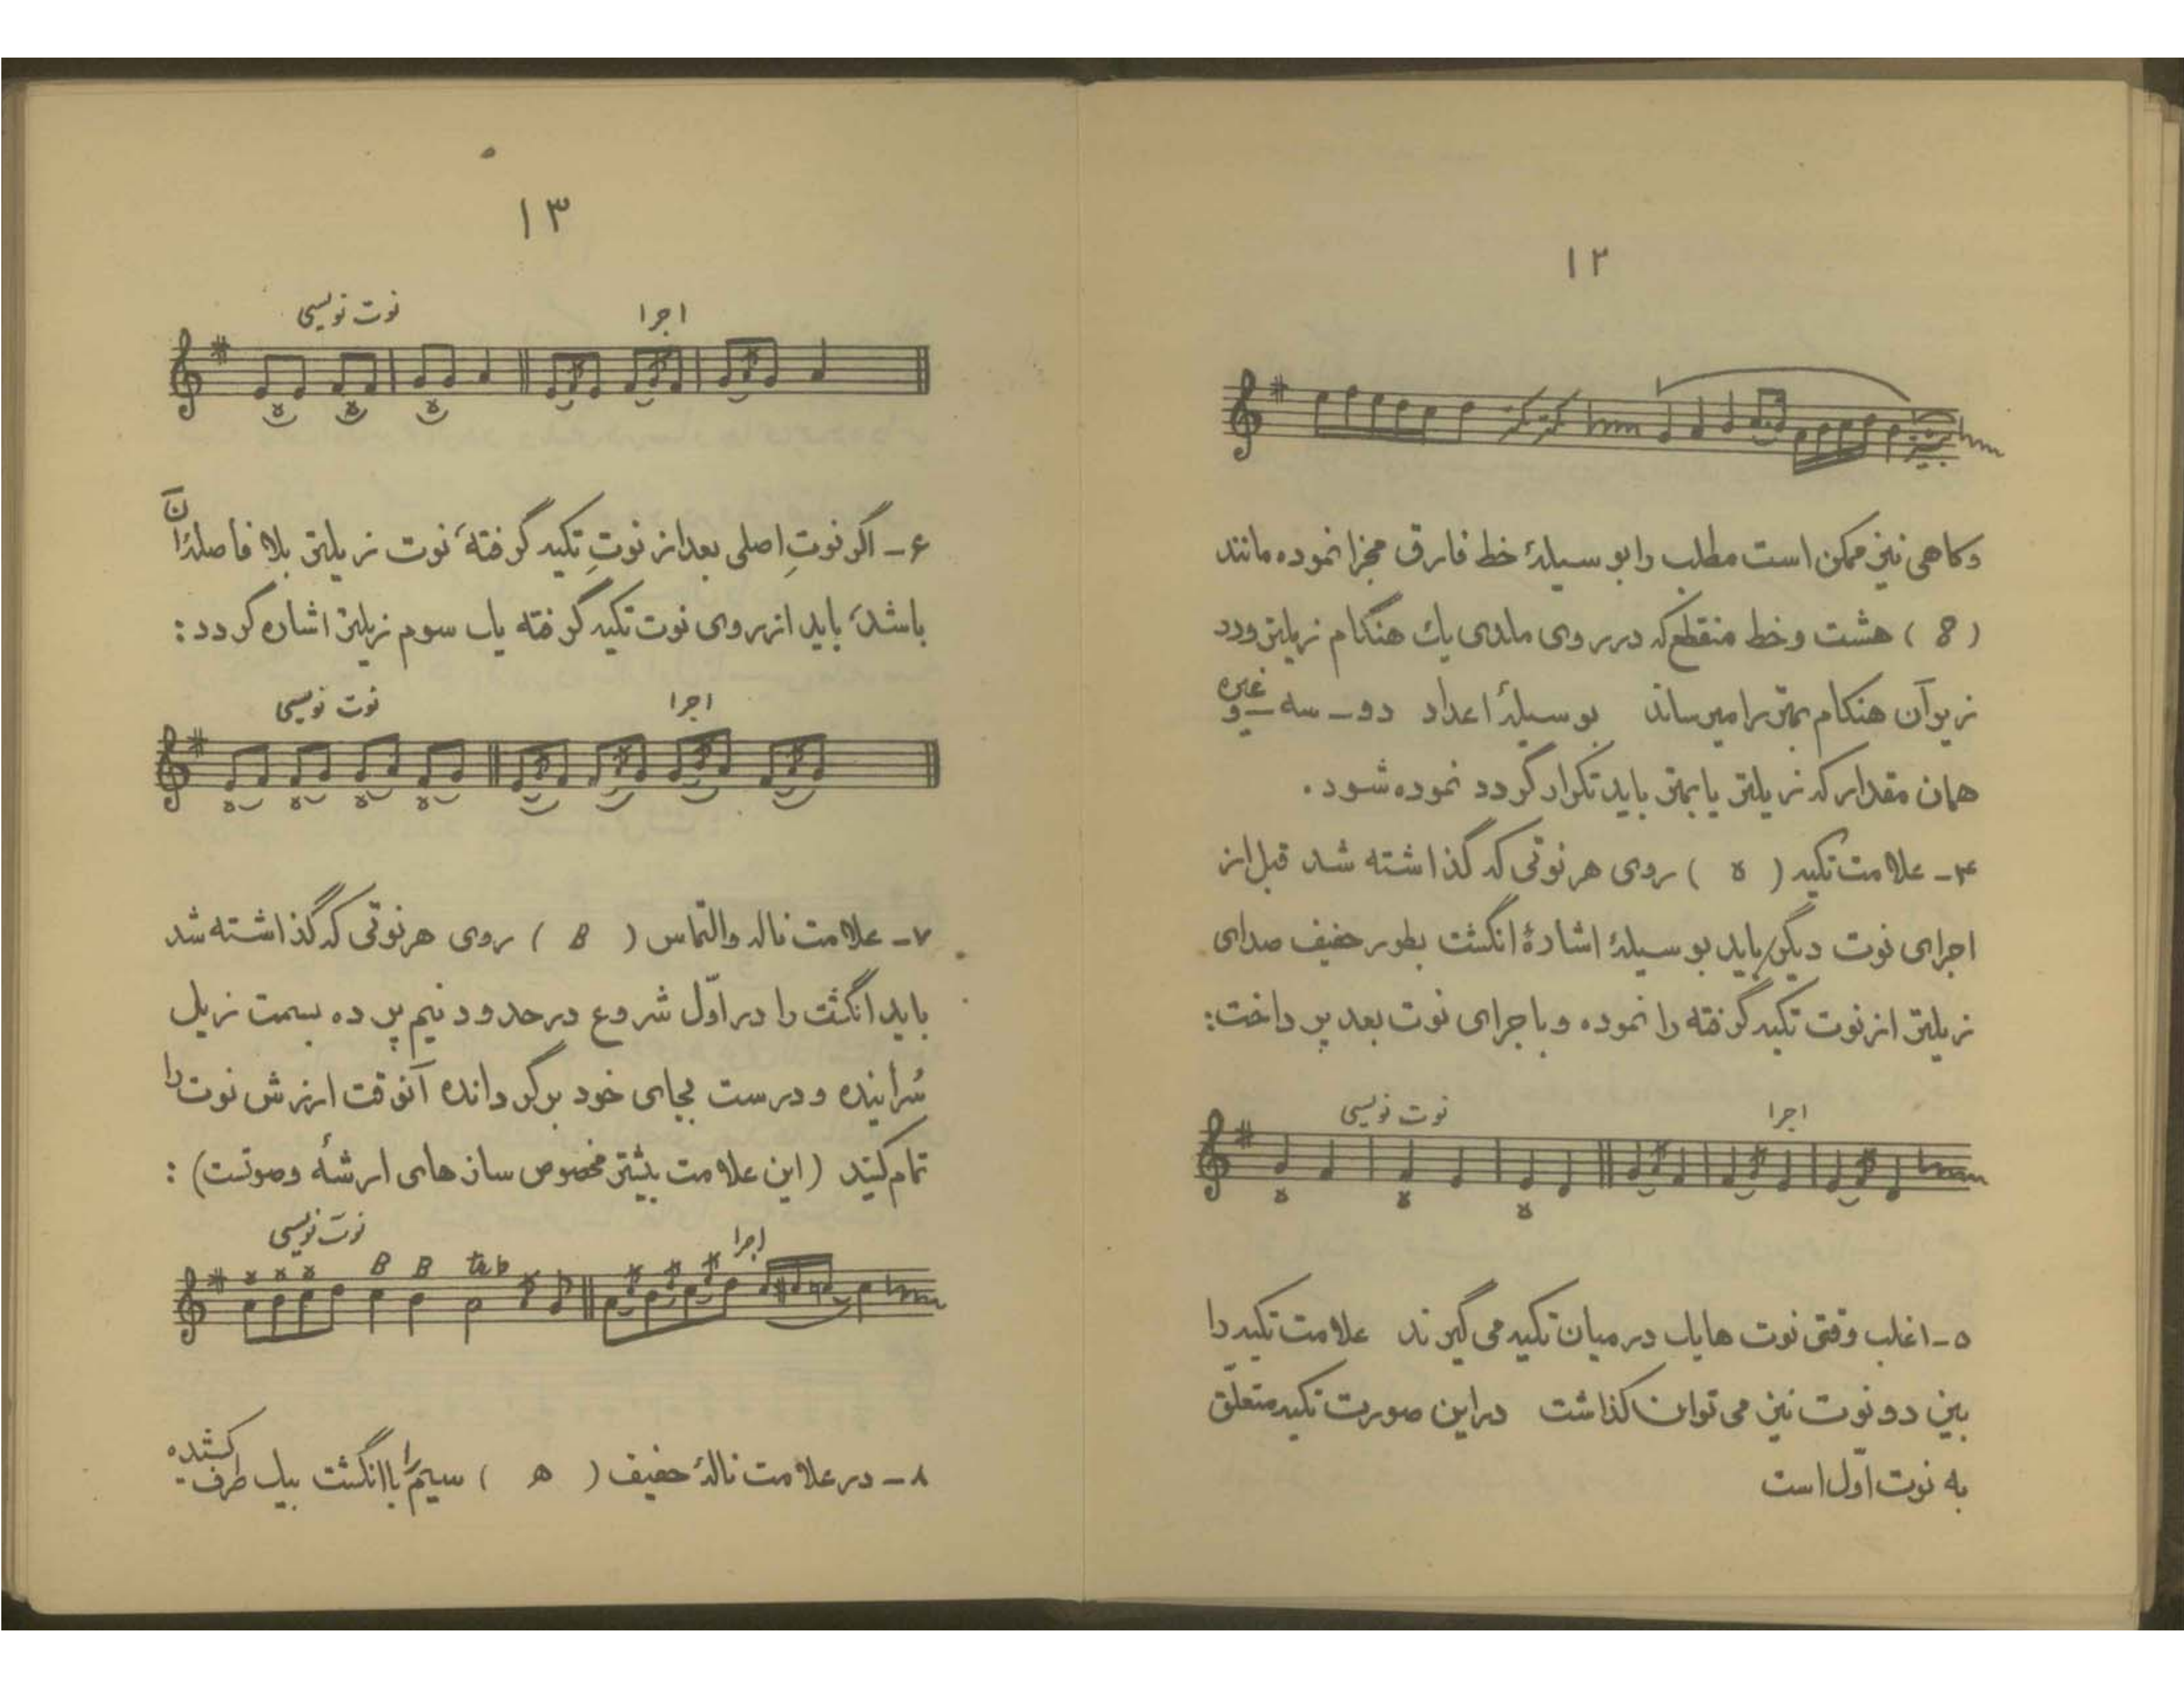 ۱۲
وگاهی نیز ممکن است مطلب را بوسیلهٔ خط فارق مجزا نموده مانند
( 8 ) هشت و خط منقطع که در روی ملدی یك هنگام زیلتر ودر
زیر آن هنگام بمتر را میرساند بوسیلهٔ اعداد دو ـ سه ـ وغیره
همان مقدار که زیلتر یا بمتر باید تکرار گردد نموده شود .
۴ـ علامت تکیه ( ة ) روی هر نوتی که گذاشته شد قبل از
اجرای نوت دیگر باید بوسیلهٔ اشارهٔ انگشت بطور خفیف صدای
زیلتر از نوت تکیه گرفته را نموده و باجرای نوت بعد پرداخت:
نوت نویسی اجرا
۵ـ اغلب وقتی نوت هایك در میان تکیه می گیرند علامت تکیه را
بین دو نوت نیز می توان گذاشت در این صورت تکیه متعلّق
به نوت اوّل است
۱۳
نوت نویسی اجرا
۶ـ اگر نوتِ اصلی بعد از نوتِ تکیه گرفته، نوت زیلتر بلا فاصلهٔ آن
باشد، باید از روی نوت تکیه گرفته یك سوم زیلتر اشاره گردد :
نوت نویسی اجرا
۷ـ علامت ناله والتماس ( B ) روی هر نوتی که گذاشته شد
باید انگشت را در اوّل شروع در حدود نیم پرده بسمت زیل
سُرانیده و درست بجای خود برگردانده آنوقت ارزش نوت را
تمام کنید (این علامت بیشتر مخصوص ساز های ارشه وصوتست) :
نوت نویسی اجرا
B B
۸ـ در علامت نالهٔ خفیف ( ه ) سیم را باانگشت بیك طرف کشیده